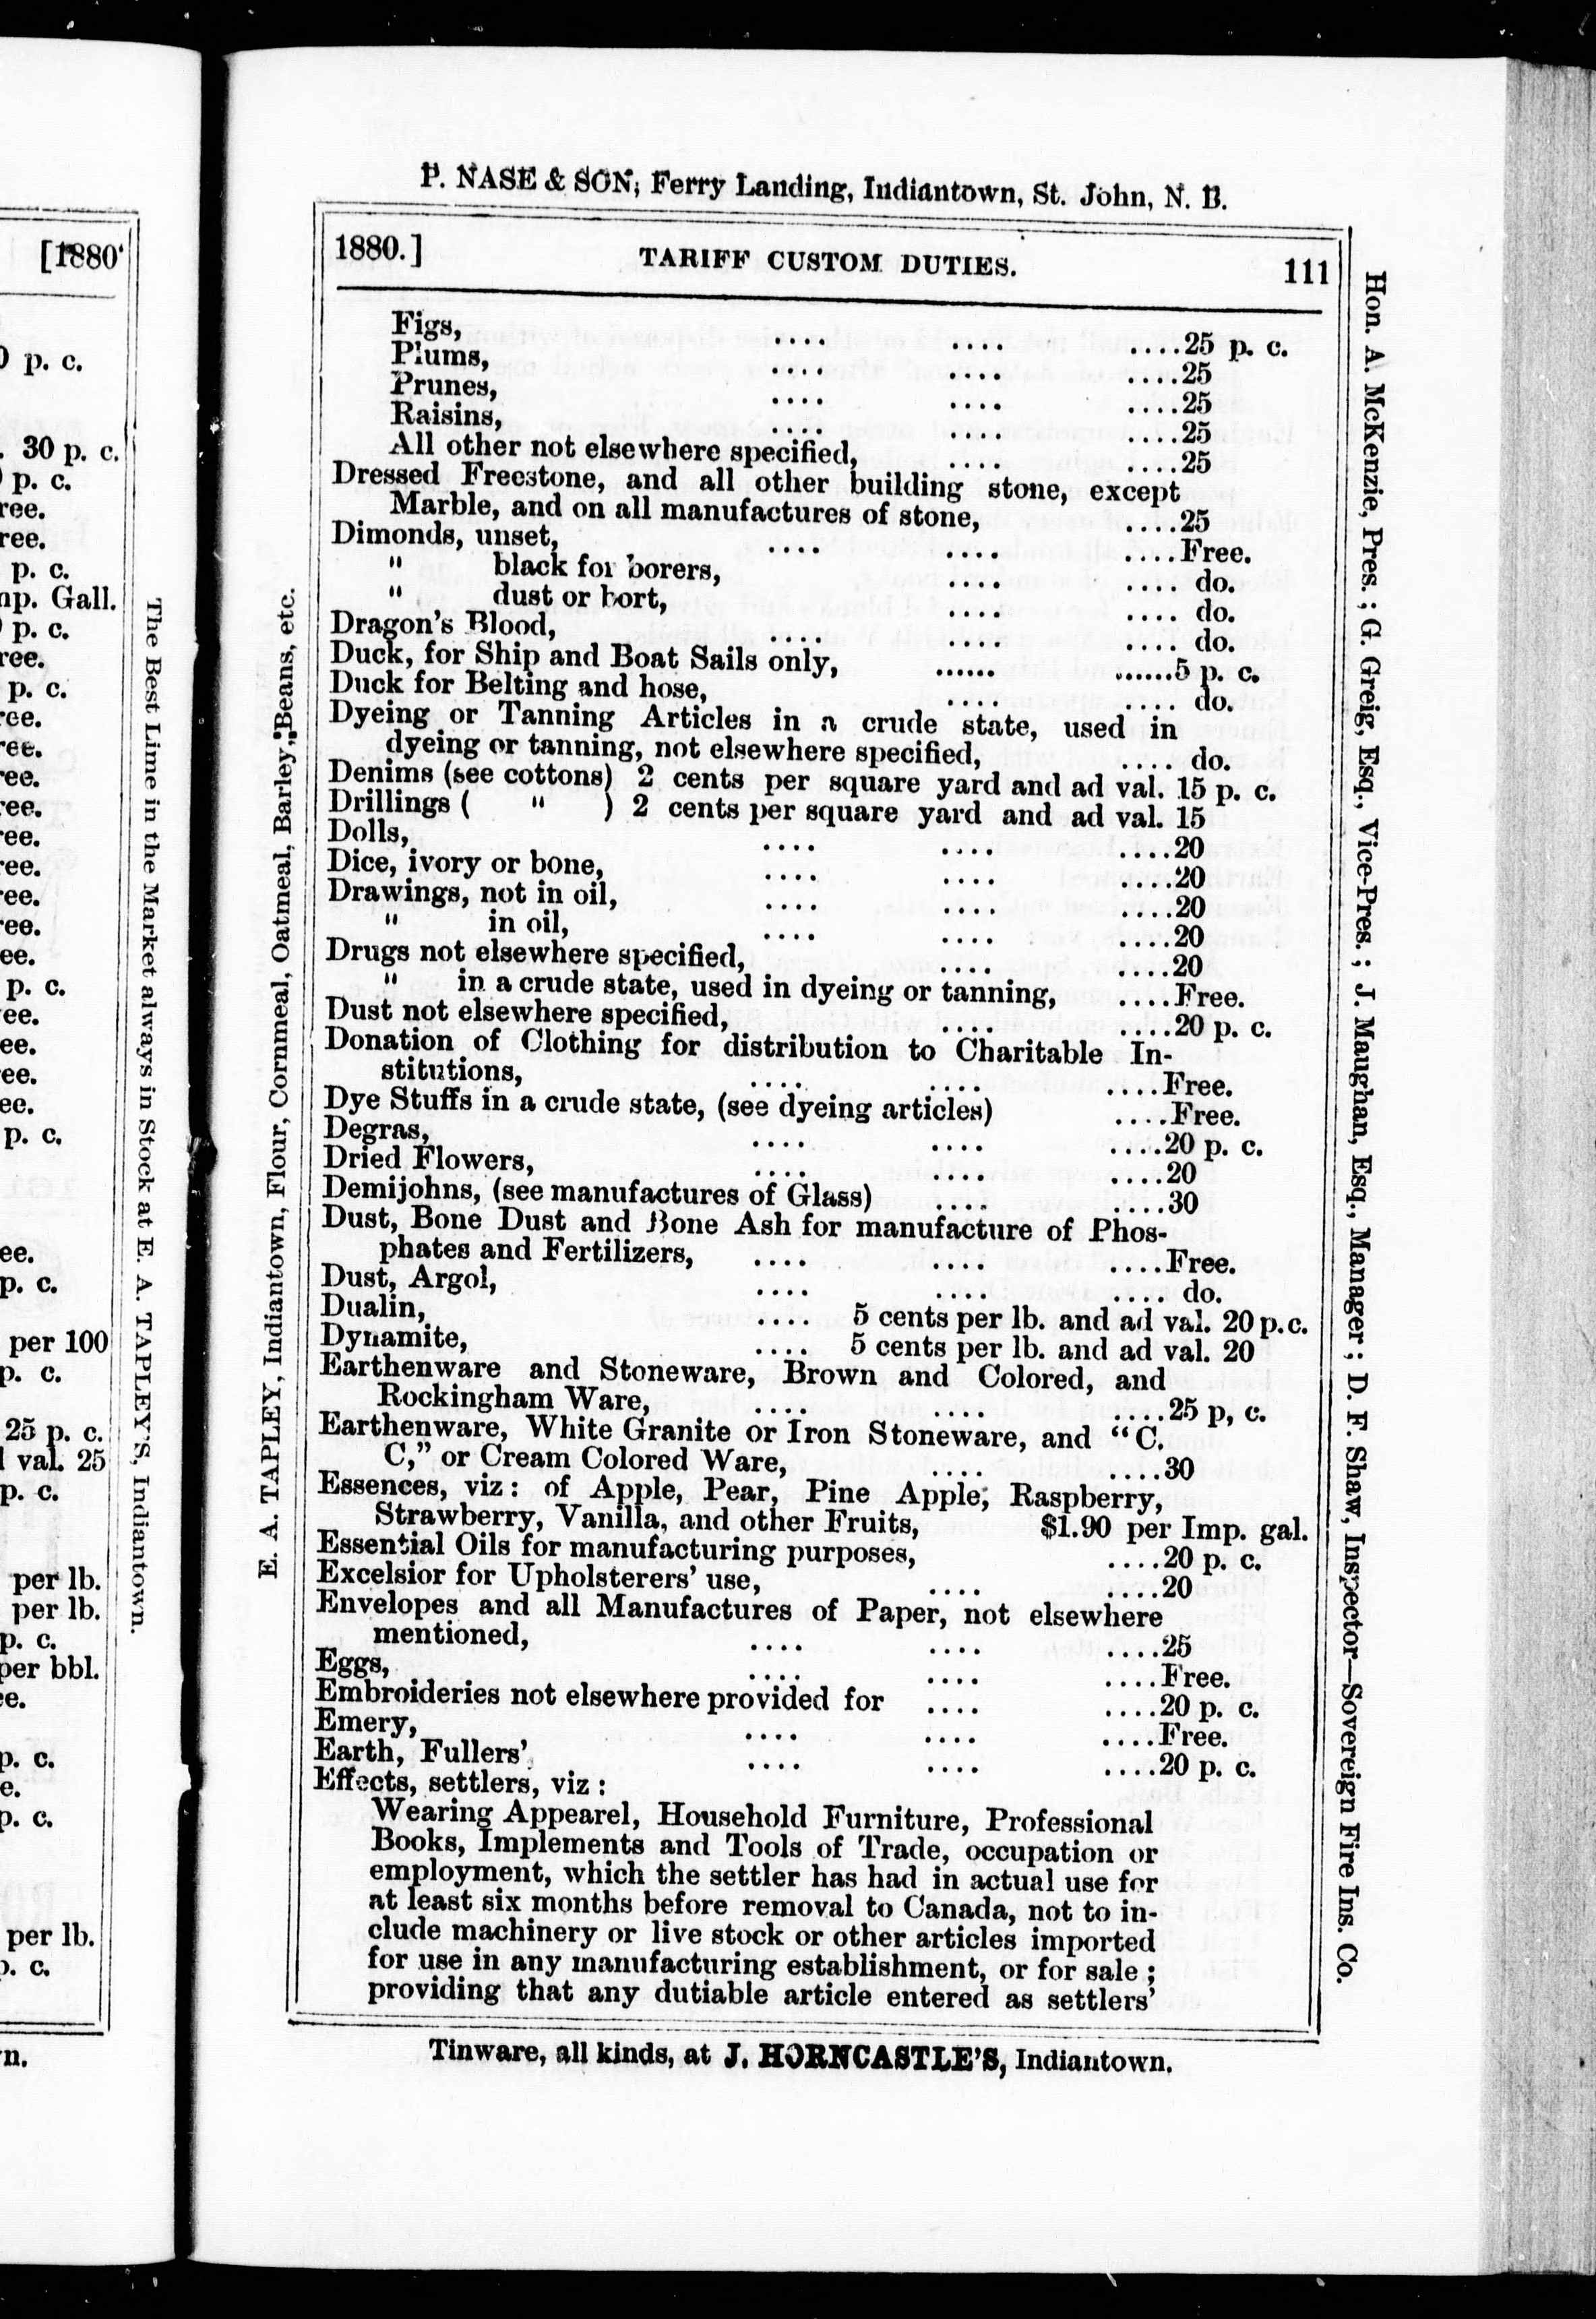 [1880
p. c.
30 p. c.
p. c.
ree.
ree.
p. c.
np. Gall.
p. c.
ree.
p. c.
ree.
ree.
ree.
ree.
ree.
ree.
ree.
ree.
ee.
p. c.
ee.
ee.
ee.
ee.
p. c.
ee.
p. c.
per 100
p. c.
25 p. c.
val. 25
p. c.
per lb.
per lb.
p. c.
per bbl.
e.
p. c.
e.
p. c.
per lb.
c.
n.
The Best Lime in the Market always in Stock at E. A. TAPLEY'S, Indiantown.
E. A. TAPLEY, Indiantown, Flour, Cornmeal, Oatmeal, Barley, Beans, etc.
P. NASE & SON, Ferry Landing, Indiantown, St. John, N. B.
1880.] TARIFF CUSTOM DUTIES. 111
Figs, .... .... ....25 p. c.
Plums, .... .... ....25
Prunes, .... .... ....25
Raisins, .... .... ....25
All other not elsewhere specified, .... ....25
Dressed Freestone, and all other building stone, except
Marble, and on all manufactures of stone, ....25
Dimonds, unset, ... .... ....Free.
" black for borers, .... .... do.
" dust or bort, .... .... do.
Dragon's Blood, .... .... .... do.
Duck, for Ship and Boat Sails only, ...... ......5 p. c.
Duck for Belting and hose, .... .... do.
Dyeing or Tanning Articles in a crude state, used in
dyeing or tanning, not elsewhere specified, .... do.
Denims (see cottons) 2 cents per square yard and ad val. 15 p. c.
Drillings ( " ) 2 cents per square yard and ad val. 15
Dolls, .... .... ....20
Dice, ivory or bone, .... .... ....20
Drawings, not in oil, .... .... ....20
" in oil, .... .... ....20
Drugs not elsewhere specified, .... ....20
" in a crude state, used in dyeing or tanning, ....Free.
Dust not elsewhere specified, .... ....20 p. c.
Donation of Clothing for distribution to Charitable In-
stitutions, .... .... ....Free.
Dye Stuffs in a crude state, (see dyeing articles) ....Free.
Degras, .... .... ....20 p. c.
Dried Flowers, .... .... ....20
Demijohns, (see manufactures of Glass) .... ....30
Dust, Bone Dust and Bone Ash for manufacture of Phos-
phates and Fertilizers, .... .... ....Free.
Dust, Argol, .... .... .... do.
Dualin, .... 5 cents per lb. and ad val. 20 p.c.
Dynamite, .... 5 cents per lb. and ad val. 20
Earthenware and Stoneware, Brown and Colored, and
Rockingham Ware, .... .... ....25 p, c.
Earthenware, White Granite or Iron Stoneware, and “C.
C,” or Cream Colored Ware, .... ....30
Essences, viz: of Apple, Pear, Pine Apple, Raspberry,
Strawberry, Vanilla, and other Fruits, $1.90 per Imp. gal.
Essential Oils for manufacturing purposes, ....20 p. c.
Excelsior for Upholsterers' use, .... ....20
Envelopes and all Manufactures of Paper, not elsewhere
mentioned, .... .... ....25
Eggs, .... .... ....Free.
Embroideries not elsewhere provided for .... ....20 p. c.
Emery, .... .... ....Free.
Earth, Fullers' .... .... ....20 p. c.
Effects, settlers, viz :
Wearing Appearel, Household Furniture, Professional
Books, Implements and Tools of Trade, occupation or
employment, which the settler has had in actual use for
at least six months before removal to Canada, not to in-
clude machinery or live stock or other articles imported
for use in any manufacturing establishment, or for sale ;
providing that any dutiable article entered as settlers'
Tinware, all kinds, at J. HORNCASTLE'S, Indiantown.
Hon. A. McKenzie, Pres. ; G. Greig, Esq., Vice-Pres. ; J. Maughan, Esq., Manager ; D. F. Shaw, Inspector—Sovereign Fire Ins. Co.